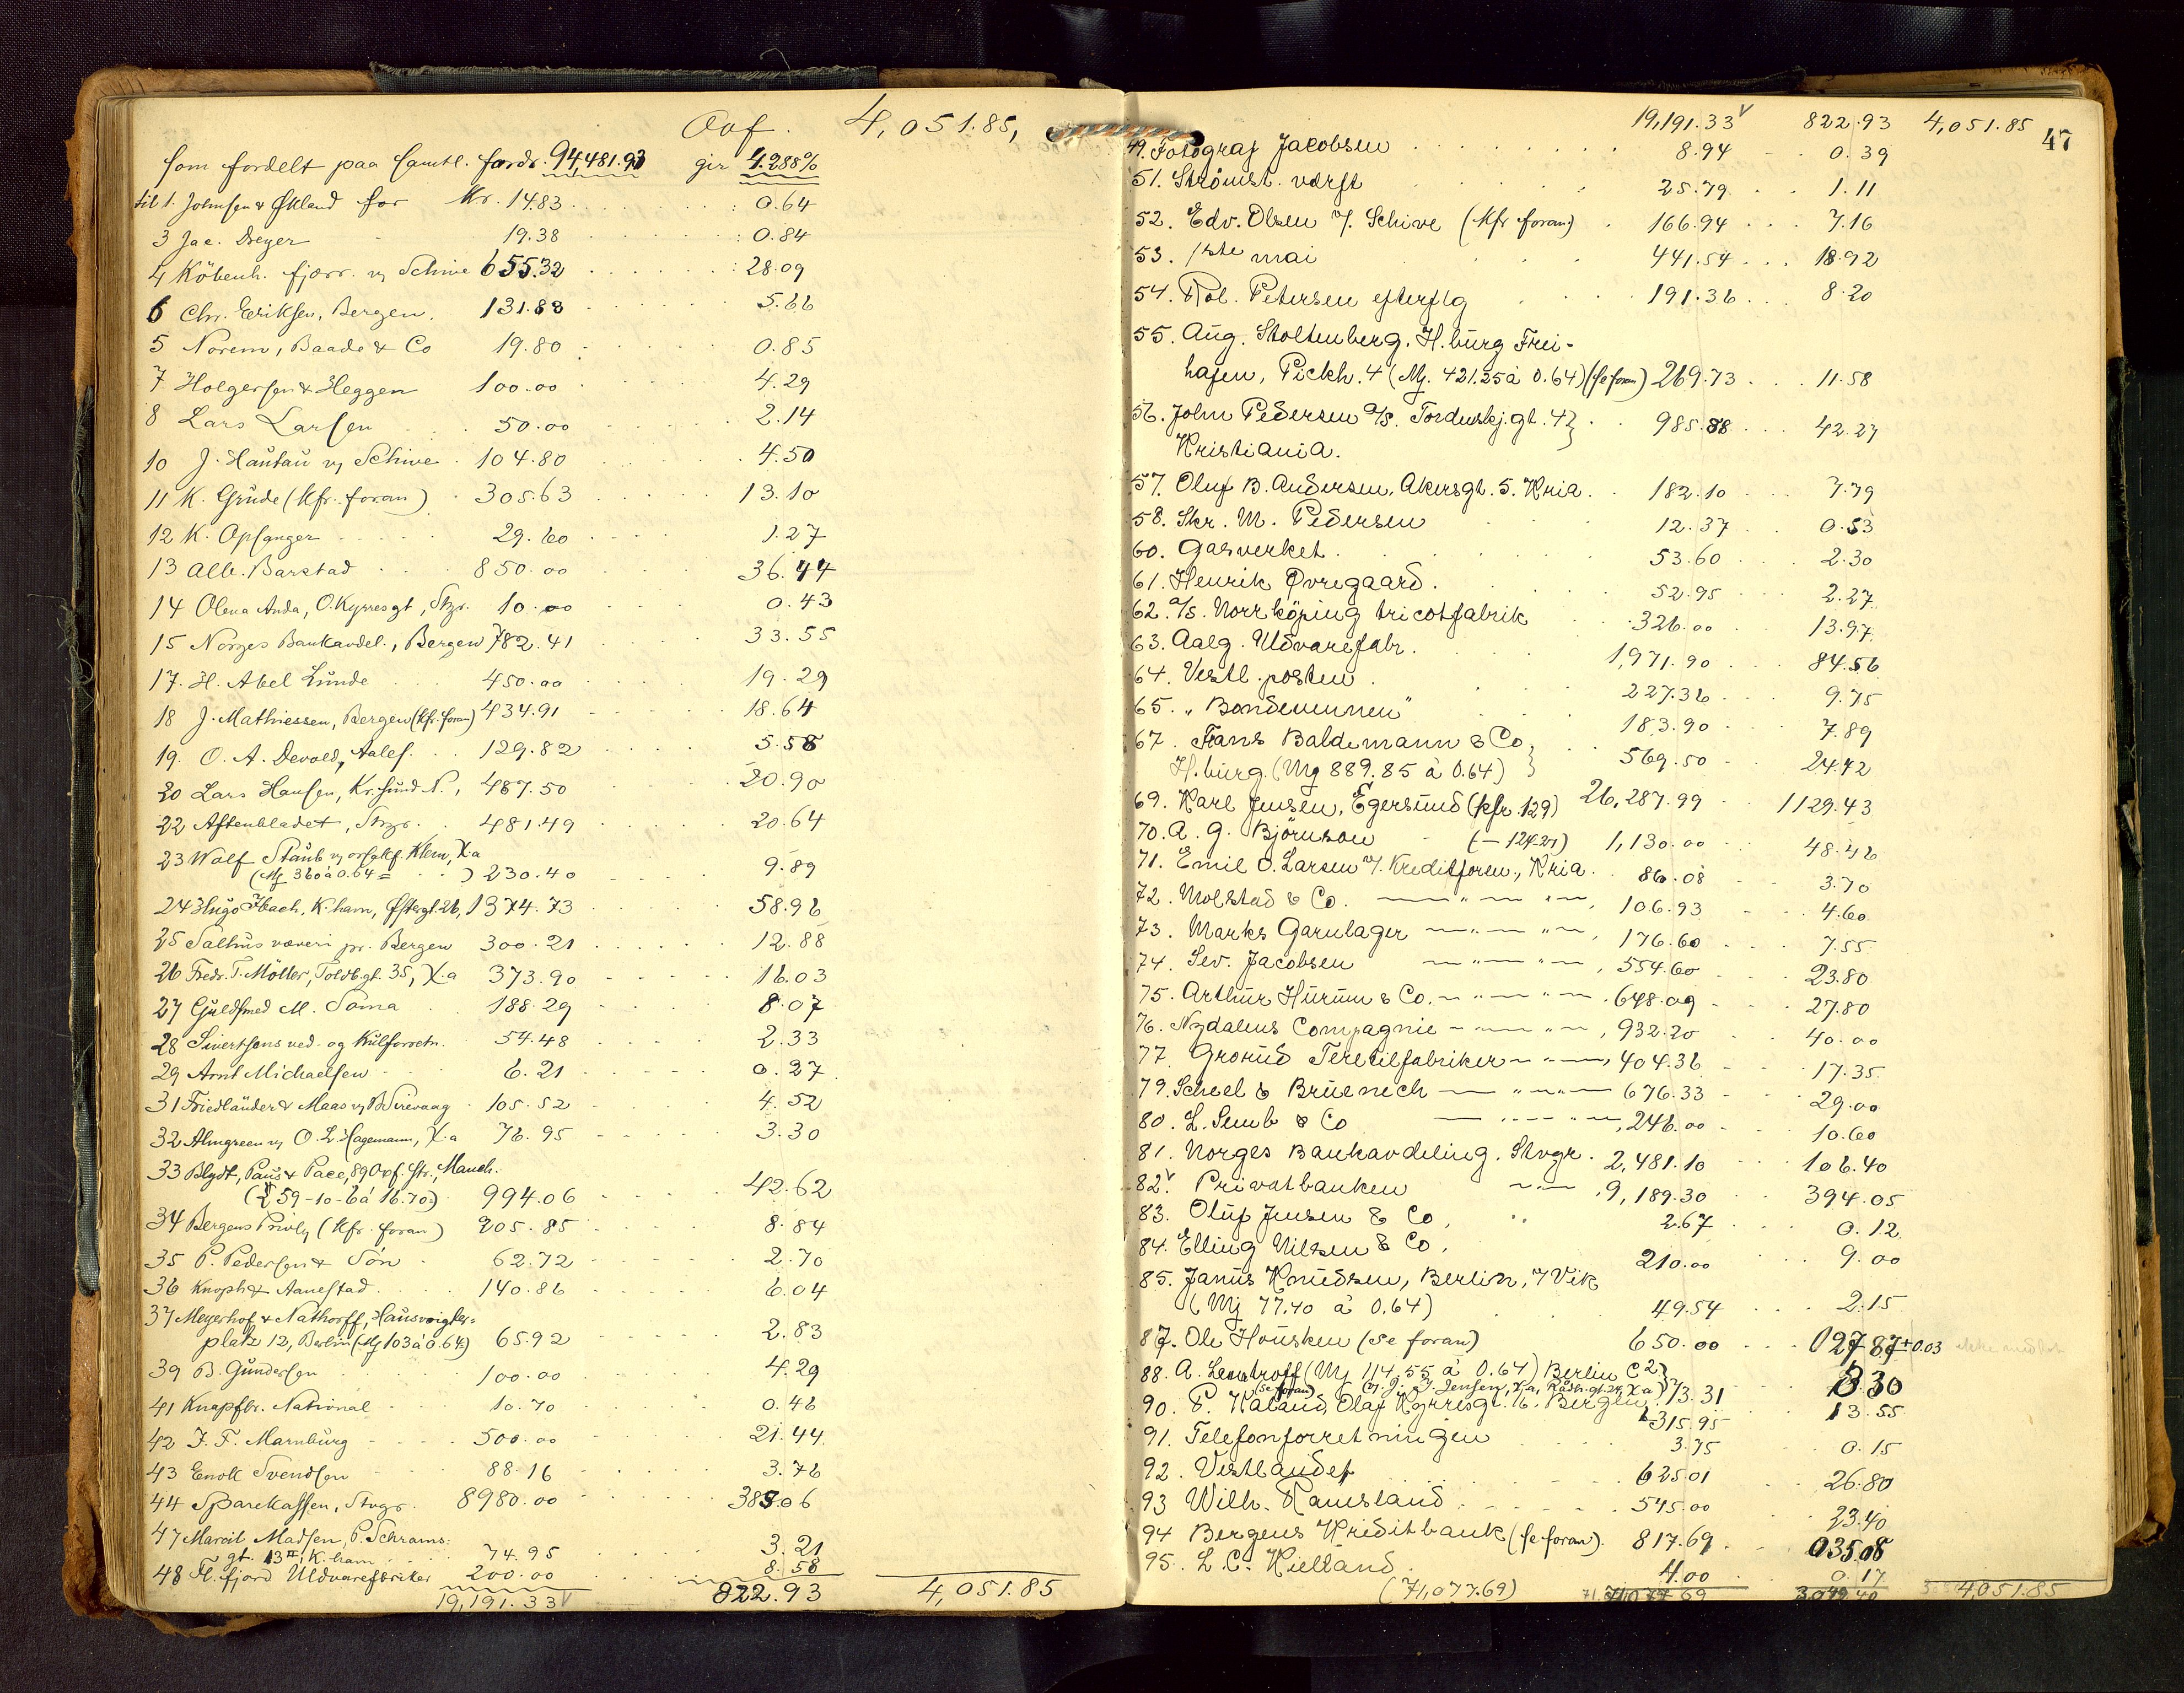 Ovf. 4,051.85,
som fordelt paa samtl. fordr. 94,481.93 gir 4.288%
til 1. Johnsen & Økland for Kr. 14.83 0.64
3 Jac. Dreyer 19.38 0.84
4 Köbenh. fjærr. v/ Schive 655.32 28.09
6 Chr. Eriksen, Bergen. 131.88 5.66
5 Norem, Baade & Co 19.80 0.85
7 Holgersen & Heggen 100.00 4.29
8 Lars Larsen 50.00 2.14
10 J. Hautau v/ Schive 104.80 4.50
11 K. Grude (kfr. foran) 305.63 13.10
12 K. Opsanger 29.60 1.27
13 Alb. Barstad 850.00 36.44
14 Olena Anda, O. Kyrresgt, Stvgr. 10.00 0.43
15 Norges Bankavdel., Bergen 782.41 33.55
17. H. Abel Lunde 450.00 19.29
18 J. Mathiessen, Bergen (kfr. foran) 434.91 18.64
19. O. A. Devold, Aales. 129.82 5.58
20 Lars Hansen, Kr.sund N., 487.50 20.90
22 Aftenbladet, Stvgr. 481.49 20.64
23 Wolf Staub v/ orsakf. Klem, X.a
(Mj 360 à 0.64 = ) 230.40 9.89
24 Hugo Ibach, K.ham, Østergt. 26, 1374.73 58.96
25 Salhus væveri pr. Bergen 300.21 12.88
26 Fredr. T. Möller, Toldb.gt. 35, X.a 373.90 16.03
27 Guldsmed M. Soma 188.29 8.07
28 Sivertsons ved- og kulforretn. 54.48 2.33
29 Arnt Michaelsen 6.21 0.27
31 Friedländer & Maas v/ B. Sirevaag 105.52 4.52
32 Almgreen v/ O. L. Hagemann, X.a 76.95 3.30
33 Blydt, Paus & Pace, 89 Oxf. Str., Manch.
(£ 59-10-6 à 16.70=) 994.06 42.62
34 Bergens Privb. (kfr. foran) 205.85 8.84
35 P. Pedersen & Søn 62.72 2.70
36 Knoph & Aanestad 140.86 6.04
37 Meyerhof & Nathorff, Hausvoigtei=
platz 12, Berlin (Mj 103 à 0.64) 65.92 2.83
39 B. Gundersen 100.00 4.29
41 Knapfbr. National 10.70 0.46
42 J. F. Marnburg 500.00 21.44
43 Enok Svendsen 88.16 3.76
44 Sparekassen, Stvgr. 8980.00 385.06
47 Marcil Madsen, P. Schrams:
gt. 13 II, K.ham 74.95 3.21
48 Fl.fjord Uldvarefabriker 200.00 8.58
19,191.33 822.93 4,051.85
19,191.33 822.93 4,051.85 47
49. Fotograf Jacobsen 8.94 0.39
51. Strömst. værft 25.79 1.11
52. Edv. Olsen v/. Schive (kfr foran) 166.94 7.16
53. 1ste mai 441.54 18.92
54. Rol. Petersen efterflg 191.36 8.20
55. Aug. Stoltenberg. H.burg Frei-
hafen, Pickh. 4 (Mj. 421.25 à 0.64) (se foran) 269.73 11.58
56. John Pedersen a/s. Tordenskj.gt. 4 985.88 42.27
Kristiania.
57. Oluf B. Andersen, Akersgt. 5. Kria 182.10 7.79
58. Skr. M. Pedersen 12.37 0.53
60. Gasverket 53.60 2.30
61. Henrik Øvregaard. 52.95 2.27
62. a/s. Norrköping tricotfabrik 326.00 13.97
63. Aalg. Uldvarefabr. 1,971.90 84.56
64. Vestl. posten 227.36 9.75
65. "Bondevennen" 183.90 7.89
67. Frans Baldemann & Co,
H.burg. (Mj 889.85 à 0.64) 569.50 24.42
69. Karl Jensen, Egersund (kfr. 129) 26,287.99 1129.43
70. A. G. Björnson (— 124-27) 1,130.00 48.46
71. Emil O. Larsen v/. Kreditforen., Kria. 86.08 3.70
72. Molstad & Co. — " — " —, 106.93 4.60
73. Marks Garnlager — " — " —, 176.60 7.55
74. Sev. Jacobsen — " — " —, 554.60 23.80
75. Arthur Hurum & Co. — " — " —. 648.09 27.80
76. Nydalens Compagnie — " — " —, 932.20 40.00
77. Grorud Textilfabriker — " —, 404.36 17.35
79. Scheel & Bruenech — " — " — 676.33 29.00
80. L. Semb & Co — " — " —, 246.00 10.60
81. Norges Bankavdeling. Stvgr. 2,481.10 106.40
82. Privatbanken — " —, 9,189.30 394.05
83. Oluf Jensen & Co, " 2.67 0.12
84. Elling Nilsen & Co, 210.00 9.00
85. Janus Knudsen, Berlin, v/ Vik
(Mj 77.40 à 0.64) 49.54 2.15
87. Ole Housken (se foran) 650.00 27.87 + 0.03
88. A. Lewtroff (Mj 114.55 à 0.64) Berlin C 2
(se foran) Jensen, X.a, Raadh.gt. 24, X.a) 73.31 3.30
90. P. Kaland, Olaf Kyrresgt. 16. Bergen 315.95 13.55
91. Telefonforretningen 3.75 0.15
92. Vestlandet 625.01 26.80
93 Wilh. Ramsland 545.00 23.40
94 Bergens Kreditbank (se foran). 817.69 35.08
95. L. C. Kielland. 4.00 0.17
(71,077.69) 71,077.69 4,051.85